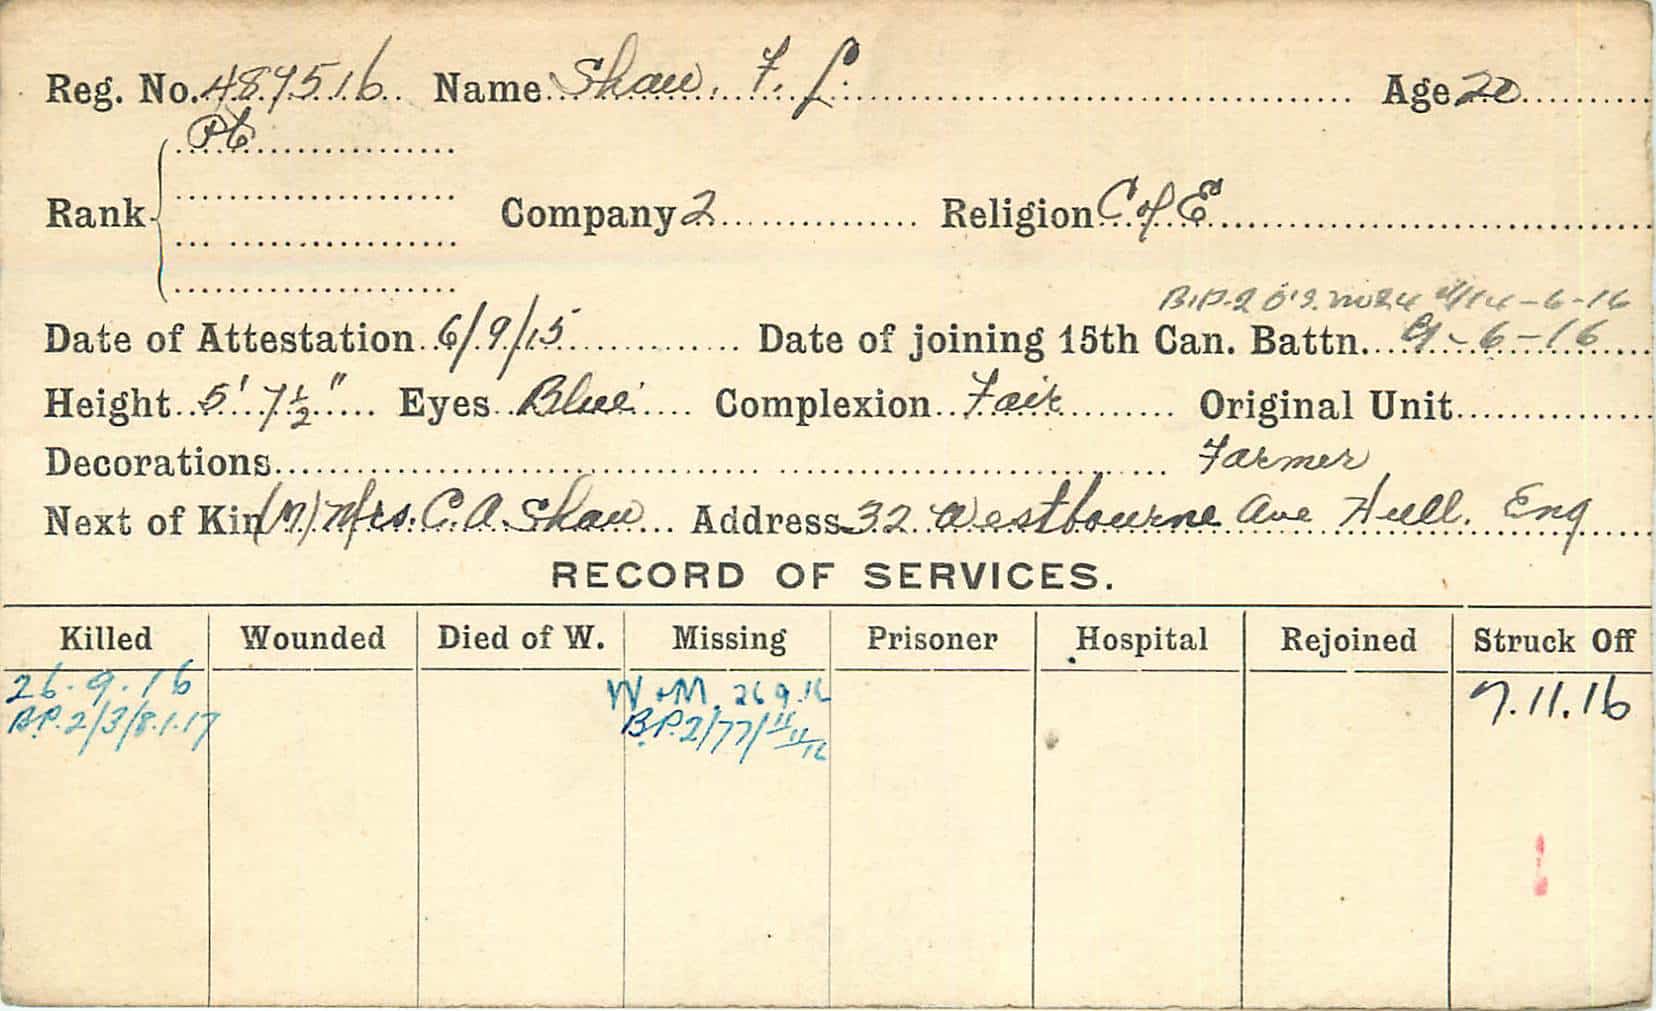 Reg. No. 489516 Name Shaw, F. L. Age 20
Pte
Rank Company 2 Religion C of E
B.P.2 14-6-16
Date of Attestation 6/9/15 Date of joining 15th Can. Battn. 9-6-16
Height 5' 7½" Eyes Blue Complexion Fair Original Unit
Decorations Farmer
Next of Kin (M) Mrs. C. A. Shaw Address 32 Westbourne Ave Hull. Eng
RECORD OF SERVICES.
Killed Wounded Died of W. Missing Prisoner Hospital Rejoined Struck Off
26.9.16 W & M. 26 9.16 7.11.16
B.P.2/3/8.1.17 B.P.2/77/11/11/16